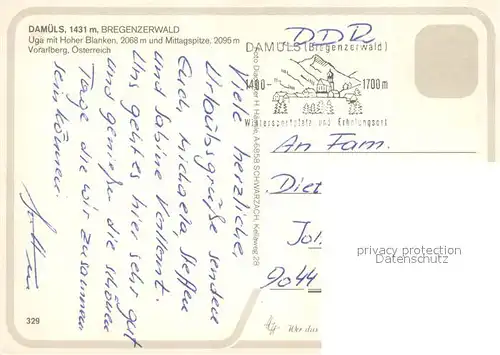 DAMÜLS, 1431 m, BREGENZERWALD
Uga mit Hoher Blanken, 2068 m und Mittagspitze, 2095 m
Vorarlberg, Österreich
Viele herzliche
Urlaubsgrüße senden
Euch Michaela, Steffen
und Sabine
Uns geht es hier sehr gut
und genießen die schönen
Tage die wir zusammen
sein können.
329
A-6858 SCHWARZACH, Kellaweg 28
DDR
DAMÜLS (Bregenzerwald)
1400 - 1700 m
Wintersportplatz und Erholungsort
An Fam.
Diet
Joh
9044
privacy protection
Datenschutz
Wer das